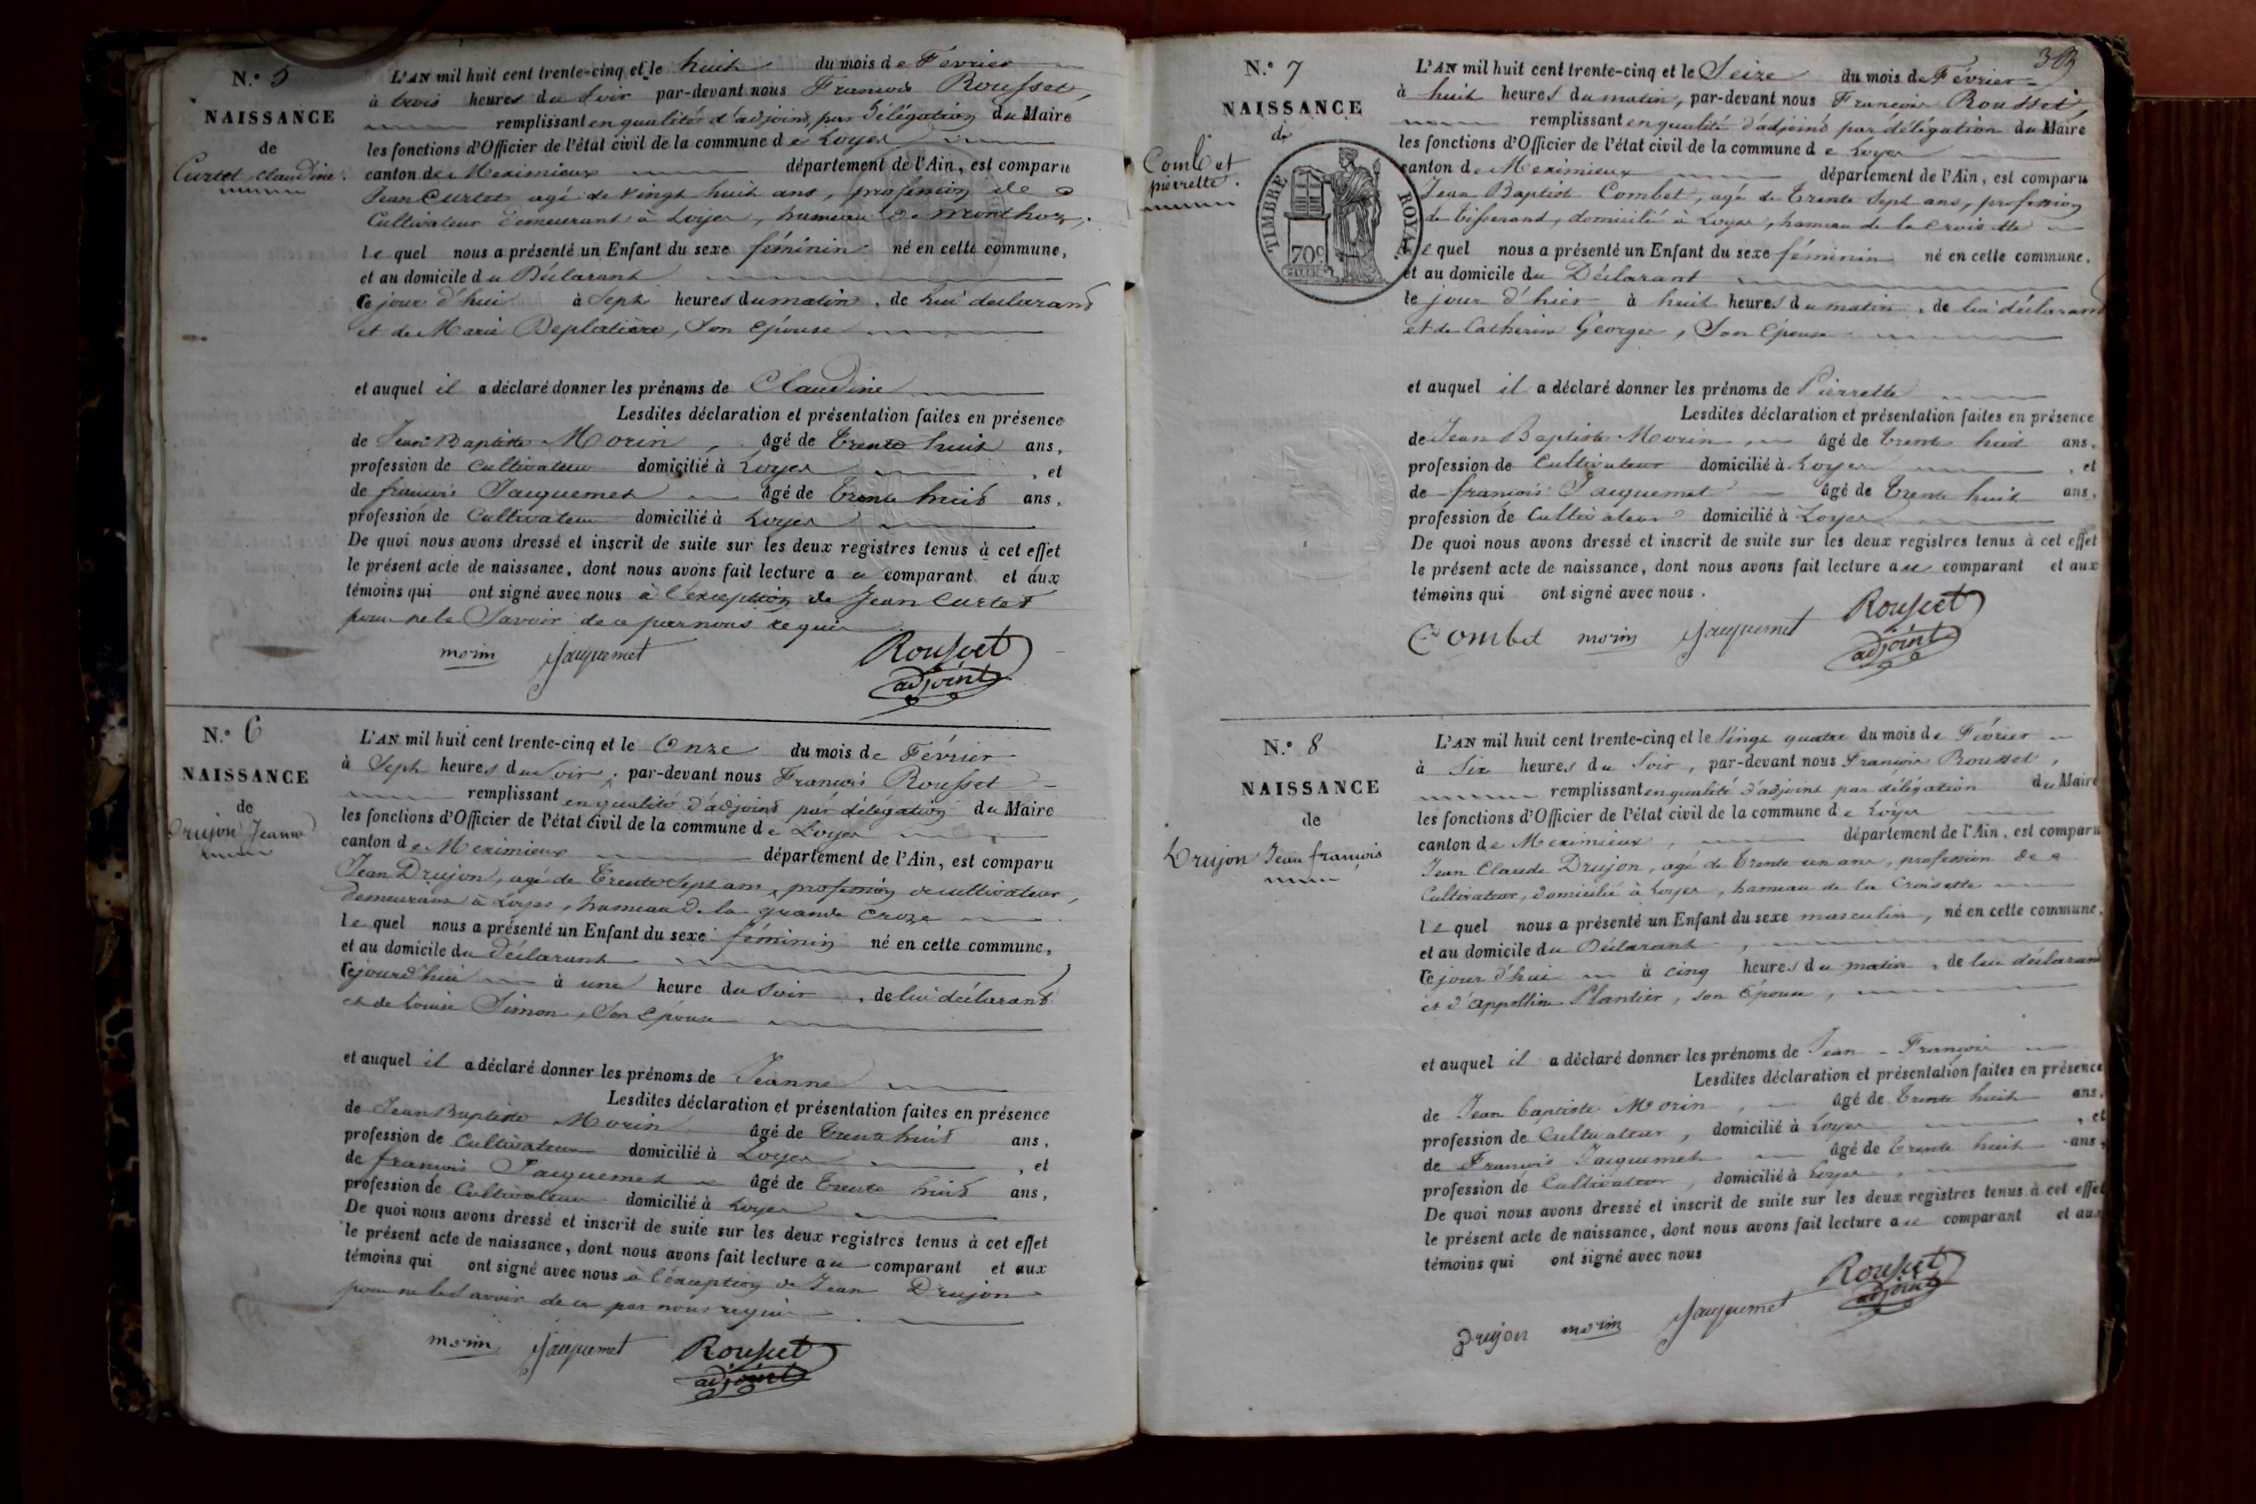 N.° 5
NAISSANCE
de
Curtet Claudine.
L'AN mil huit cent trente-cinq et le huit du mois de Février
à trois heures du Soir par-devant nous François Rousset,
remplissant en qualité d'adjoint par délégation du Maire
les fonctions d'Officier de l'état civil de la commune de Loyes
canton de Meximieux département de l'Ain, est comparu
Jean Curtet agé de vingt huit ans, profession de
Cultivateur demeurant à Loyes, hameau de Monthoz,
lequel nous a présenté un Enfant du sexe féminin né en cette commune,
et au domicile du Déclarant
cejourd'hui à Sept heures du matin, de lui déclarant
et de Marie Deplatière, Son épouse
et auquel il a déclaré donner les prénoms de Claudine
Lesdites déclaration et présentation faites en présence
de Jean Baptiste Morin, âgé de trente huit ans,
profession de Cultivateur domicilié à Loyes, et
de françois Jacquemet âgé de trente huit ans,
profession de Cultivateur domicilié à Loyes
De quoi nous avons dressé et inscrit de suite sur les deux registres tenus à cet effet
le présent acte de naissance, dont nous avons fait lecture au comparant et aux
témoins qui ont signé avec nous à l'exception de Jean Curtet
pour ne le Savoir de ce par nous requis
morin Jacquemet Rousset
adjoint
N.° 6
NAISSANCE
de
Drujon Jeanne
L'AN mil huit cent trente-cinq et le Onze du mois de Février
à Sept heures du Soir, par-devant nous François Rousset
remplissant en qualité d'adjoint par délégation du Maire
les fonctions d'Officier de l'état civil de la commune de Loyes
canton de Meximieux département de l'Ain, est comparu
Jean Drujon, agé de trente Sept ans, profession de cultivateur,
demeurant à Loyes, hameau de la grande Croze
lequel nous a présenté un Enfant du sexe féminin né en cette commune,
et au domicile du déclarant
cejourd'hui à une heure du Soir, de lui déclarant
et de Louise Simon, Son épouse
et auquel il a déclaré donner les prénoms de Jeanne
Lesdites déclaration et présentation faites en présence
de Jean Baptiste Morin âgé de trente huit ans,
profession de Cultivateur domicilié à Loyes, et
de françois Jacquemet âgé de trente huit ans,
profession de Cultivateur domicilié à Loyes
De quoi nous avons dressé et inscrit de suite sur les deux registres tenus à cet effet
le présent acte de naissance, dont nous avons fait lecture au comparant et aux
témoins qui ont signé avec nous à l'exception de Jean Drujon
pour ne le Savoir de ce par nous requis
morin Jacquemet Rousset
adjoint
N.° 7
NAISSANCE
de
Combet
pierrette.
TIMBRE ROYAL
70c
L'AN mil huit cent trente-cinq et le Seize du mois de Février
à huit heures du matin, par-devant nous François Rousset,
remplissant en qualité d'adjoint par délégation du Maire
les fonctions d'Officier de l'état civil de la commune de Loyes
canton de Meximieux département de l'Ain, est comparu
Jean Baptiste Combet, agé de trente Sept ans, profession
de tisserand, domicilié à Loyes, hameau de la croisette
lequel nous a présenté un Enfant du sexe féminin né en cette commune,
et au domicile du Déclarant
le jour d'hier à huit heures du matin, de lui déclarant
et de Catherine Georges, Son épouse
et auquel il a déclaré donner les prénoms de Pierrette
Lesdites déclaration et présentation faites en présence
de Jean Baptiste Morin, âgé de trente huit ans,
profession de Cultivateur domicilié à Loyes, et
de françois Jacquemet âgé de trente huit ans,
profession de Cultivateur domicilié à Loyes
De quoi nous avons dressé et inscrit de suite sur les deux registres tenus à cet effet
le présent acte de naissance, dont nous avons fait lecture au comparant et aux
témoins qui ont signé avec nous.
Combet morin Jacquemet Rousset
adjoint
N.° 8
NAISSANCE
de
Drujon Jean françois
L'AN mil huit cent trente-cinq et le Vingt quatre du mois de Février
à Six heures du Soir, par-devant nous François Rousset,
remplissant en qualité d'adjoint par délégation du Maire
les fonctions d'Officier de l'état civil de la commune de Loyes
canton de Meximieux, département de l'Ain, est comparu
Jean Claude Drujon, agé de trente un ans, profession de
Cultivateur, domicilié à Loyes, hameau de la Croisette
lequel nous a présenté un Enfant du sexe masculin, né en cette commune,
et au domicile du Déclarant,
cejourd'hui à cinq heures du matin, de lui déclarant
et d'Appolline Plantier, son Épouse,
et auquel il a déclaré donner les prénoms de Jean - François
Lesdites déclaration et présentation faites en présence
de Jean baptiste Morin, âgé de trente huit ans,
profession de Cultivateur, domicilié à Loyes, et
de François Jacquemet âgé de trente huit ans,
profession de Cultivateur, domicilié à Loyes,
De quoi nous avons dressé et inscrit de suite sur les deux registres tenus à cet effet
le présent acte de naissance, dont nous avons fait lecture au comparant et aux
témoins qui ont signé avec nous
Drujon morin Jacquemet Rousset
adjoint